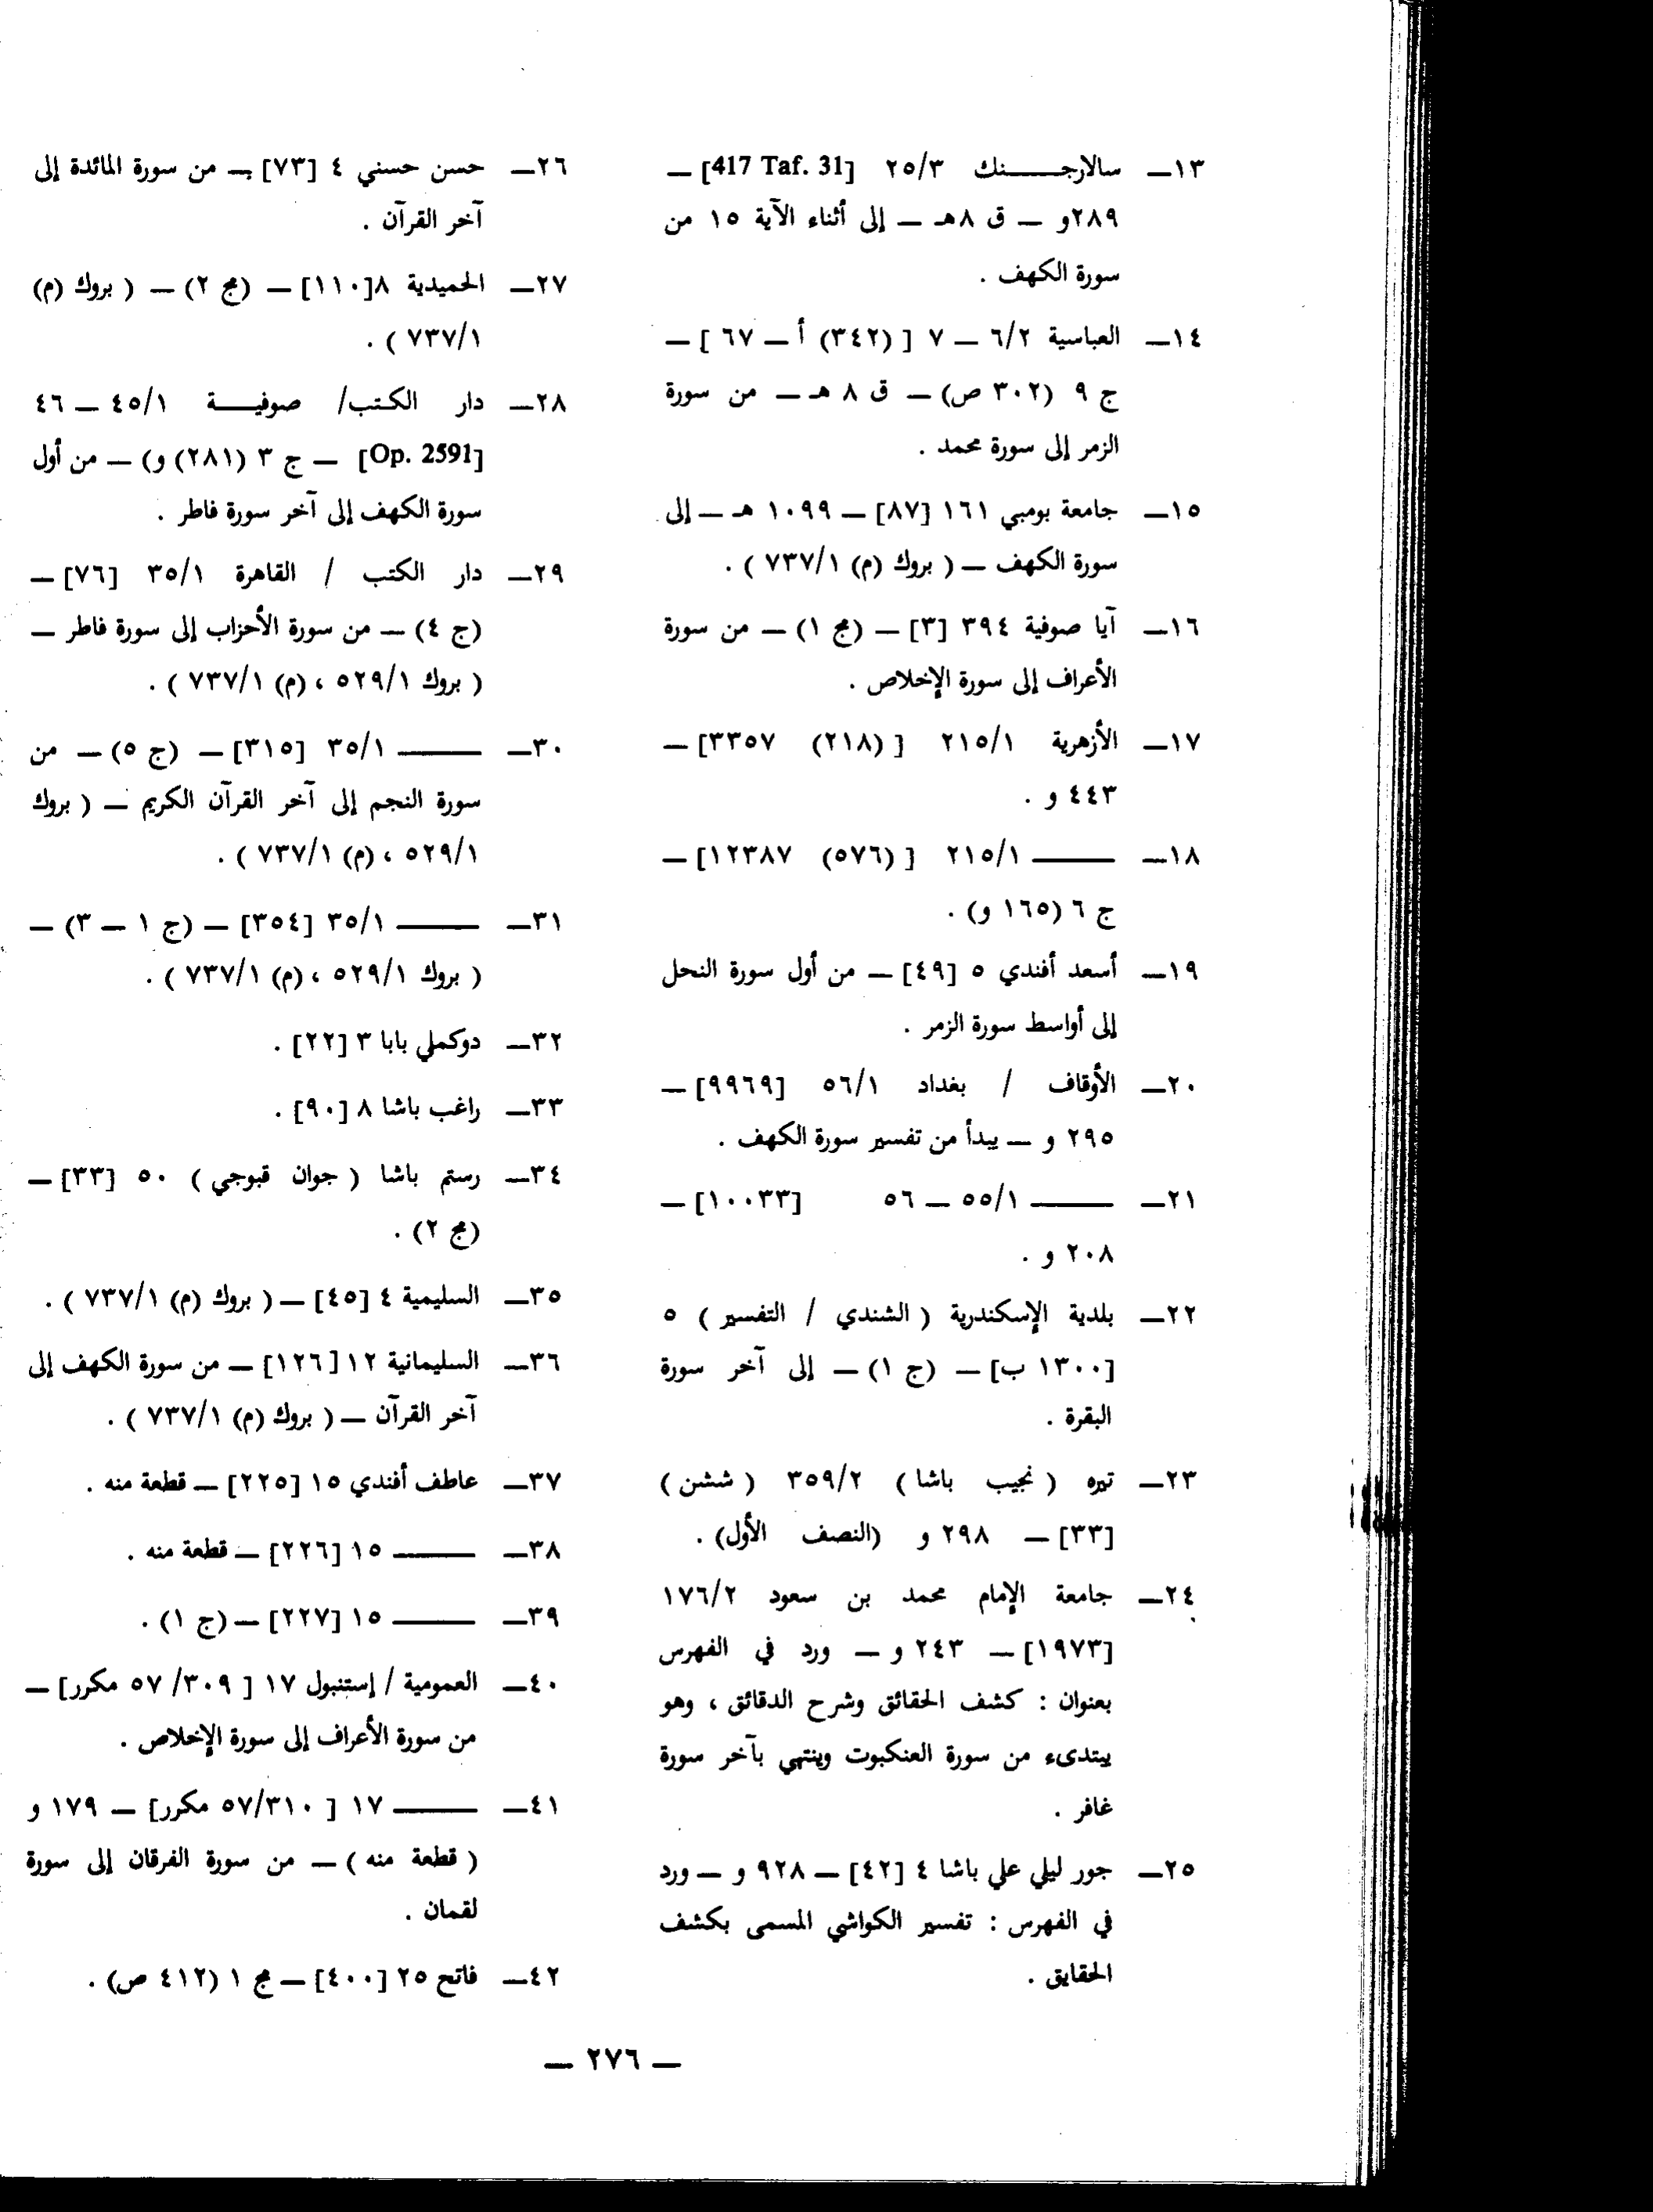 ١٣ــ سالارجـــــنك ٢٥/٣ [417 Taf. 31] ــ
٢٨٩و ــ ق ٨هـ ــ إلى أثناء الآية ١٥ من
سورة الكهف .
١٤ــ العباسية ٦/٢ ــ ٧ [ (٣٤٢) أ ــ ٦٧ ] ــ
ج ٩ (٣٠٢ ص) ــ ق ٨ هـ ــ من سورة
الزمر إلى سورة محمد .
١٥ــ جامعة بومبي ١٦١ [٨٧] ــ ١٠٩٩ هـ ــ إلى
سورة الكهف ــ ( بروك (م) ٧٣٧/١ ) .
١٦ــ آيا صوفية ٣٩٤ [٣] ــ (مج ١) ــ من سورة
الأعراف إلى سورة الإخلاص .
١٧ــ الأزهرية ٢١٥/١ [ (٢١٨) ٣٣٥٧] ــ
٤٤٣ و .
١٨ــ ـــــــ ٢١٥/١ [ (٥٧٦) ١٢٣٨٧] ــ
ج ٦ (١٦٥ و) .
١٩ــ أسعد أفندي ٥ [٤٩] ــ من أول سورة النحل
إلى أواسط سورة الزمر .
٢٠ــ الأوقاف / بغداد ٥٦/١ [٩٩٦٩] ــ
٢٩٥ و ــ يبدأ من تفسير سورة الكهف .
٢١ــ ـــــــ ٥٥/١ ــ ٥٦ [١٠٠٣٣] ــ
٢٠٨ و .
٢٢ــ بلدية الإسكندرية ( الشندي / التفسير ) ٥
[١٣٠٠ ب] ــ (ج ١) ــ إلى آخر سورة
البقرة .
٢٣ــ تيره ( نجيب باشا ) ٣٥٩/٢ ( ششن )
[٣٣] ــ ٢٩٨ و (النصف الأول) .
٢٤ــ جامعة الإمام محمد بن سعود ١٧٦/٢
[١٩٧٣] ــ ٢٤٣ و ــ ورد في الفهرس
بعنوان : كشف الحقائق وشرح الدقائق ، وهو
يبتدىء من سورة العنكبوت وينتهي بآخر سورة
غافر .
٢٥ــ جور ليلي علي باشا ٤ [٤٢] ــ ٩٢٨ و ــ ورد
في الفهرس : تفسير الكواشي المسمى بكشف
الحقايق .
٢٦ــ حسن حسني ٤ [٧٣] ــ من سورة المائدة إلى
آخر القرآن .
٢٧ــ الحميدية ٨[١١٠] ــ (مج ٢) ــ ( بروك (م)
٧٣٧/١ ) .
٢٨ــ دار الكتب/ صوفيـــة ٤٥/١ ــ ٤٦
[Op. 2591] ــ ج ٣ (٢٨١) و) ــ من أول
سورة الكهف إلى آخر سورة فاطر .
٢٩ــ دار الكتب / القاهرة ٣٥/١ [٧٦] ــ
(ج ٤) ــ من سورة الأحزاب إلى سورة فاطر ــ
( بروك ٥٢٩/١ ، (م) ٧٣٧/١ ) .
٣٠ــ ـــــــ ٣٥/١ [٣١٥] ــ (ج ٥) ــ من
سورة النجم إلى آخر القرآن الكريم ــ ( بروك
٥٢٩/١ ، (م) ٧٣٧/١ ) .
٣١ــ ـــــــ ٣٥/١ [٣٥٤] ــ (ج ١ ــ ٣) ــ
( بروك ٥٢٩/١ ، (م) ٧٣٧/١ ) .
٣٢ــ دوكملي بابا ٣ [٢٢] .
٣٣ــ راغب باشا ٨ [٩٠] .
٣٤ــ رستم باشا ( جوان قبوجي ) ٥٠ [٣٣] ــ
(مج ٢) .
٣٥ــ السليمية ٤ [٤٥] ــ ( بروك (م) ٧٣٧/١ ) .
٣٦ــ السليمانية ١٢ [١٢٦] ــ من سورة الكهف إلى
آخر القرآن ــ ( بروك (م) ٧٣٧/١ ) .
٣٧ــ عاطف أفندي ١٥ [٢٢٥] ــ قطعة منه .
٣٨ــ ـــــــ ١٥ [٢٢٦] ــ قطعة منه .
٣٩ــ ـــــــ ١٥ [٢٢٧] ــ (ج ١) .
٤٠ــ العمومية / إستنبول ١٧ [ ٣٠٩/ ٥٧ مكرر] ــ
من سورة الأعراف إلى سورة الإخلاص .
٤١ــ ـــــــ ١٧ [ ٥٧/٣١٠ مكرر] ــ ١٧٩ و
( قطعة منه ) ــ من سورة الفرقان إلى سورة
لقمان .
٤٢ــ فاتح ٢٥ [٤٠٠] ــ مج ١ (٤١٢ ص) .
ــ ٢٧٦ ــ